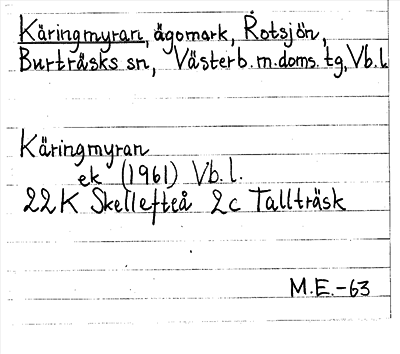 Käringmyran, ägomark, Rotsjön,
Burträsks sn, Västerb. m. doms. tg, Vb. l
Käringmyran
ek (1961) Vb. l.
22K Skellefteå 2c Tallträsk
M.E.-63